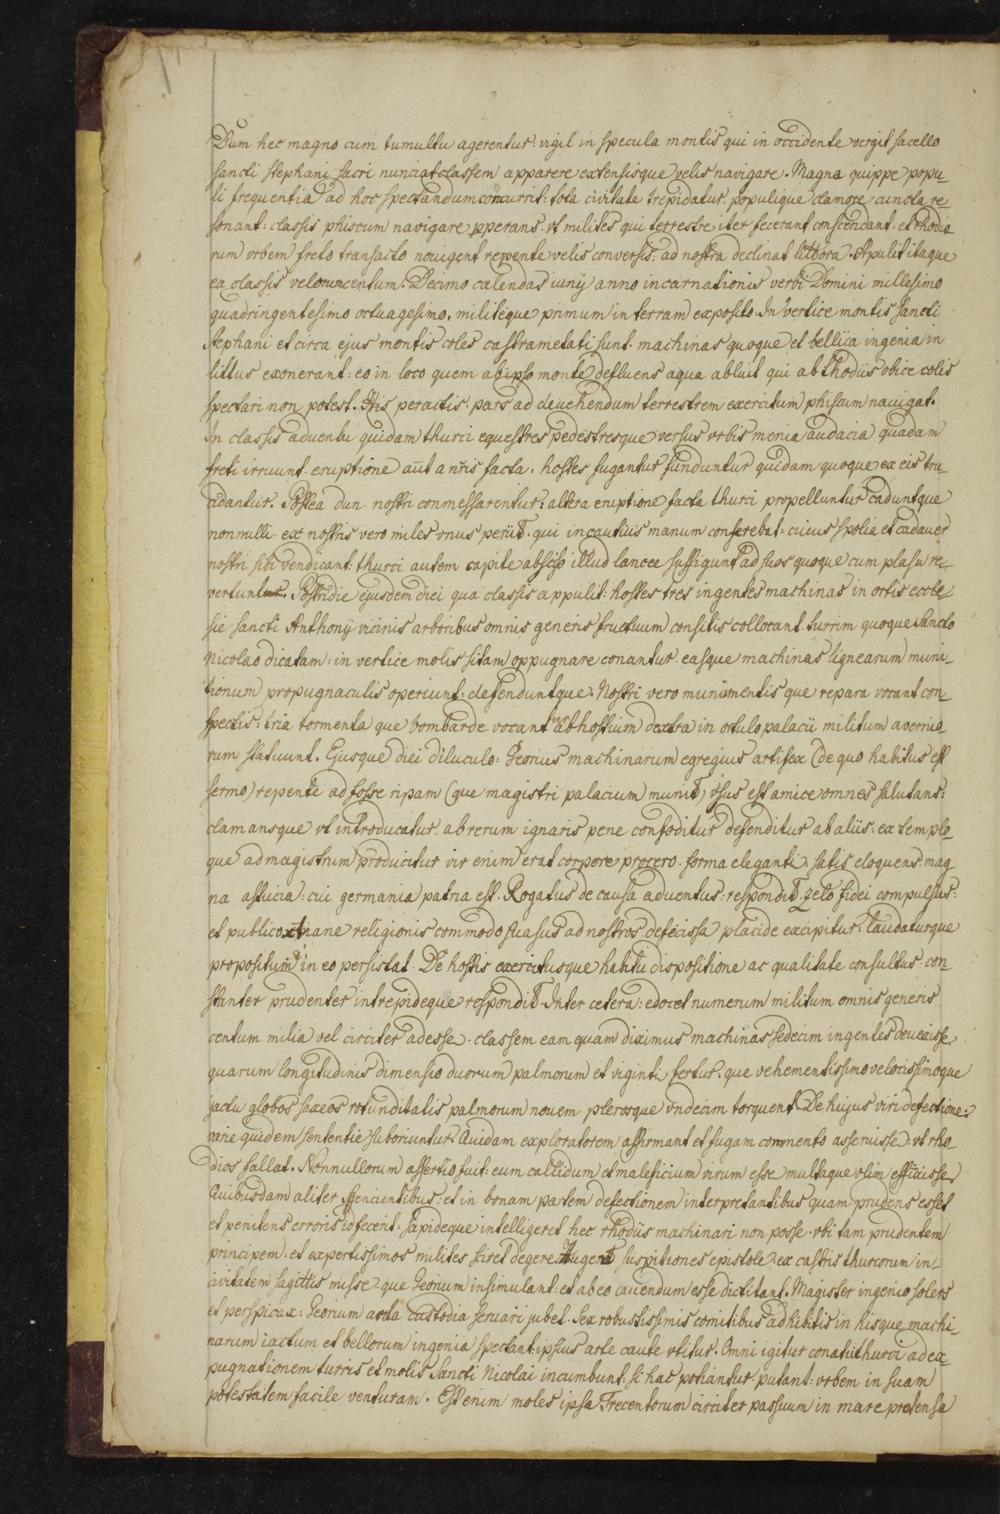 Dum hec magno cum tumultu agerentur: vigil in specula montis qui in occidente vergit sacello
sancti stephani sacri nunciat classem apparere extensisque velis navigare. Magna quippe popu-
li frequentia ad hoc spectandum concurrit: tota civitate trepidatur. populique clamore cuncta re-
sonant: classis phiscum navigare pperans. vt milites qui terrestre iter fecerant conscendant. et rhodio
rum vrbem freto transacto nauigent repente velis conversis. ad nostra declinat littora. Apulit itaque
ea classis velorum centum. Decimo calendas iunij anno incarnationis verbi Domini millesimo
quadringentesimo octuagesimo. militéque primum in terram exposito. In vertice montis sancti
stephani et circa ejus montis coles castrametati sunt. machinas quoque et bellica ingenia in
littus exonerant: eo in loco quem ab ipso monte defluens aqua abluit qui ab rhodiis obice colis
spectari non potest. His peractis. pars ad devehendum terrestrem exercitum phiscum nauigat.
In classis adventu quidam thurci equestres pedestresque versus vrbis menia audacia quadam
freti irruunt. eruptione aūt a nr̄is facta. hostes fugantur funduntur quidam quoque ex eis tru-
cidantur. Postea dun nostri conmessarentur: altera eruptione facta thurci propelluntur caduntque
nonnulli. ex nostris vero miles vnus periit. qui incautius manum conserebat. cuius spolia et cadauer
nostri sibi vendicant: thurci autem capite absciso illud lancee suffigunt ad suos quoque cum plasu re-
vertunt. Postridie ejusdem diei qua classis appulit: hostes tres ingentes machinas in ortis eccle
sie sancti Anthonij vicinis arboribus omnis generis fructuum consitis collocant. turrim quoque sancto
Nicolao dicatam: in vertice molis sitam oppugnare conantur. easque machinas lignearum muni-
tionum propugnaculis operiunt: defenduntque. Nostri vero munimentis que repara vocant con-
spectis: tria tormenta que bombarde vocant ab hostium dextra in ortulo palacii militum avernio
rum statuunt. Ejusque diei diluculo: Georius machinarum egregius artifex (de quo habitus est
sermo) repente ad fosse ripam (que magistri palacium munit) visus est amice omnes salutans:
clamansque vt introducatur ab rerum ignaris pene confoditur defenditur ab aliis: extemplo-
que ad magistrum producitur vir enim erat corpore procero. forma eleganti. satis eloquens. mag
na astucia: cui germania patria est. Rogatus de causa aduentus: respondit. zelo fidei compulsus:
et publico xtiane religionis commodo suasus ad nostros defecissa placide excipitur. laudaturque
propositum in eo persistat. De hostis exercitusque habitu dispositione ac qualitate consultus. con-
stanter prudenter intrepideque respondit. Inter cetera: edocet numerum militum omnis generis
centum milia vel circiter adesse. classem eam quam diximus machinas sedecim ingentes deuexisse
quarum longitudinis dimensio duorum palmorum et viginti fertur. que vehementissimo velocissimoque
jactu globos saxeos rotunditatis palmorum nouem plerosque vndecim torquent. De hujus viri defectione:
varie quidem sententie suboriuntur. Quidam exploratorem affirmant et fugam commento asseruisse. vt rho-
dios fallat. Nonnullorum assertio fuit: eum callidum et maleficium virum esse multaque olim effecisse
Quibusdam aliter sencientibus: et in bonam partem defectionem interpretantibus quam prudens esset
et penitens erroris id fecerit. Sapideque intelligeret hec rhodiis machinari non posse. vbi tam prudentem
principem. et expertissimos milites sciret degere. Augent suspitiones epistole. ex castris thurcorum in
civitatem sagittis misse. que Georium insimulant: et ab eo cauendum esse dictitant. Magister ingenio solers
et perspicax: Georium arda custodia seruari jubet. Sex robustissimis comitibus adhibitis in hisque machi-
narum iactum et bellorum ingenia spectant: ipsius arte caute vtitur. Omni igitur conatu thurci ad ex
pugnationem turris et molis Sancti Nicolai incumbunt. si hac potiantur. putant. vrbem in suam
potestatem facile venturam. Est enim moles ipsa Trecentorum circiter passuum in mare protensa